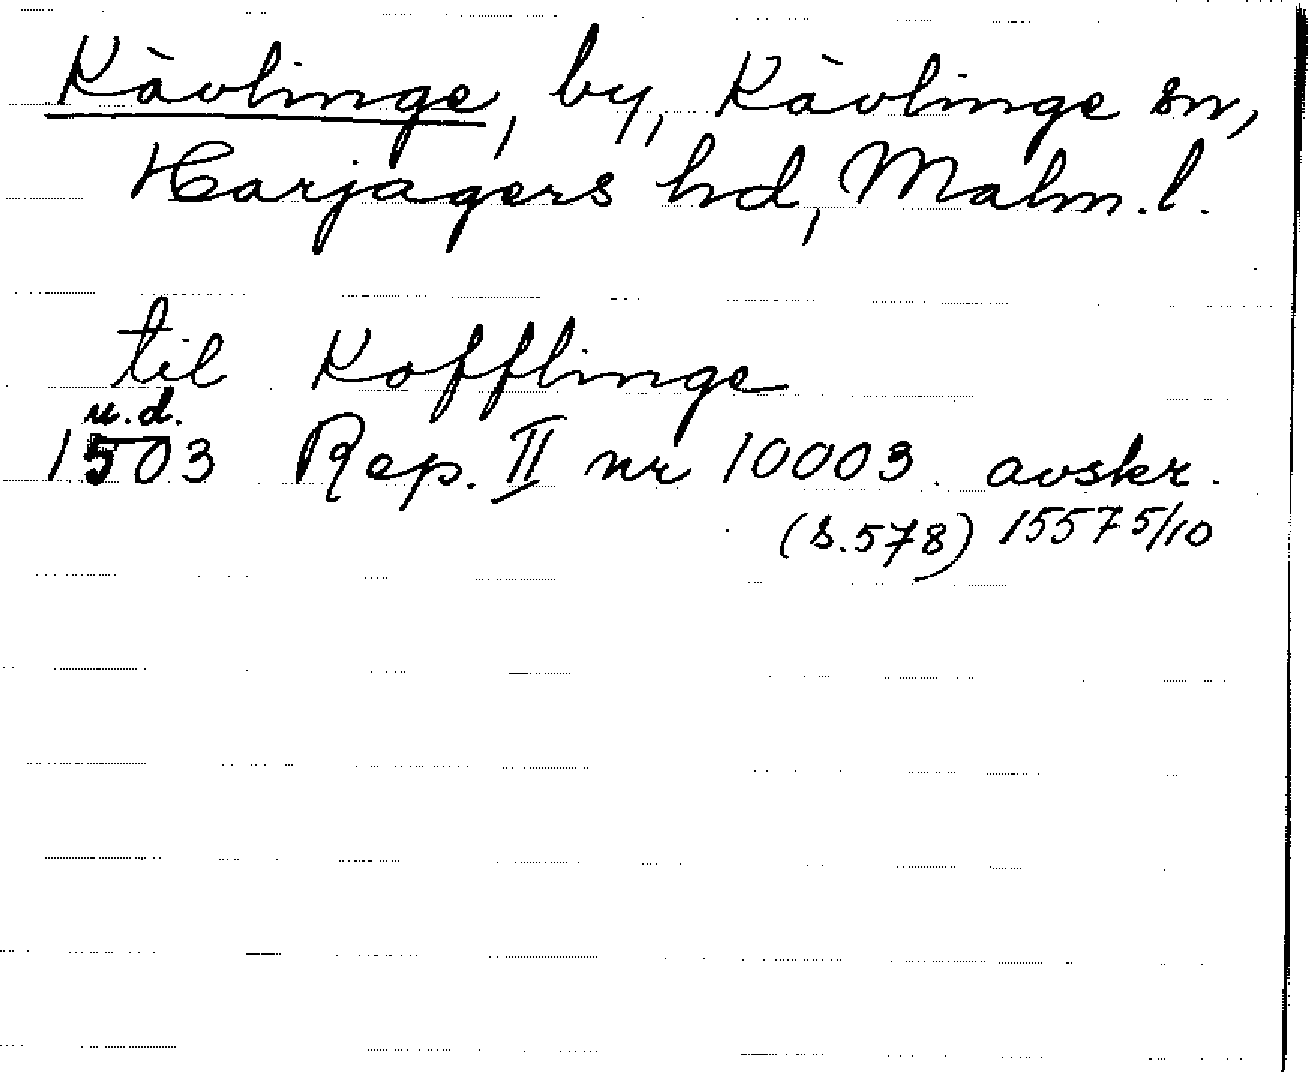 Kävlinge, by, Kävlinge sn,
Harjagers hd, Malm. l.
til Kofflinge
u.d.
1503 Rep. II nr 10003 avskr.
(s. 578) 1557 5/10